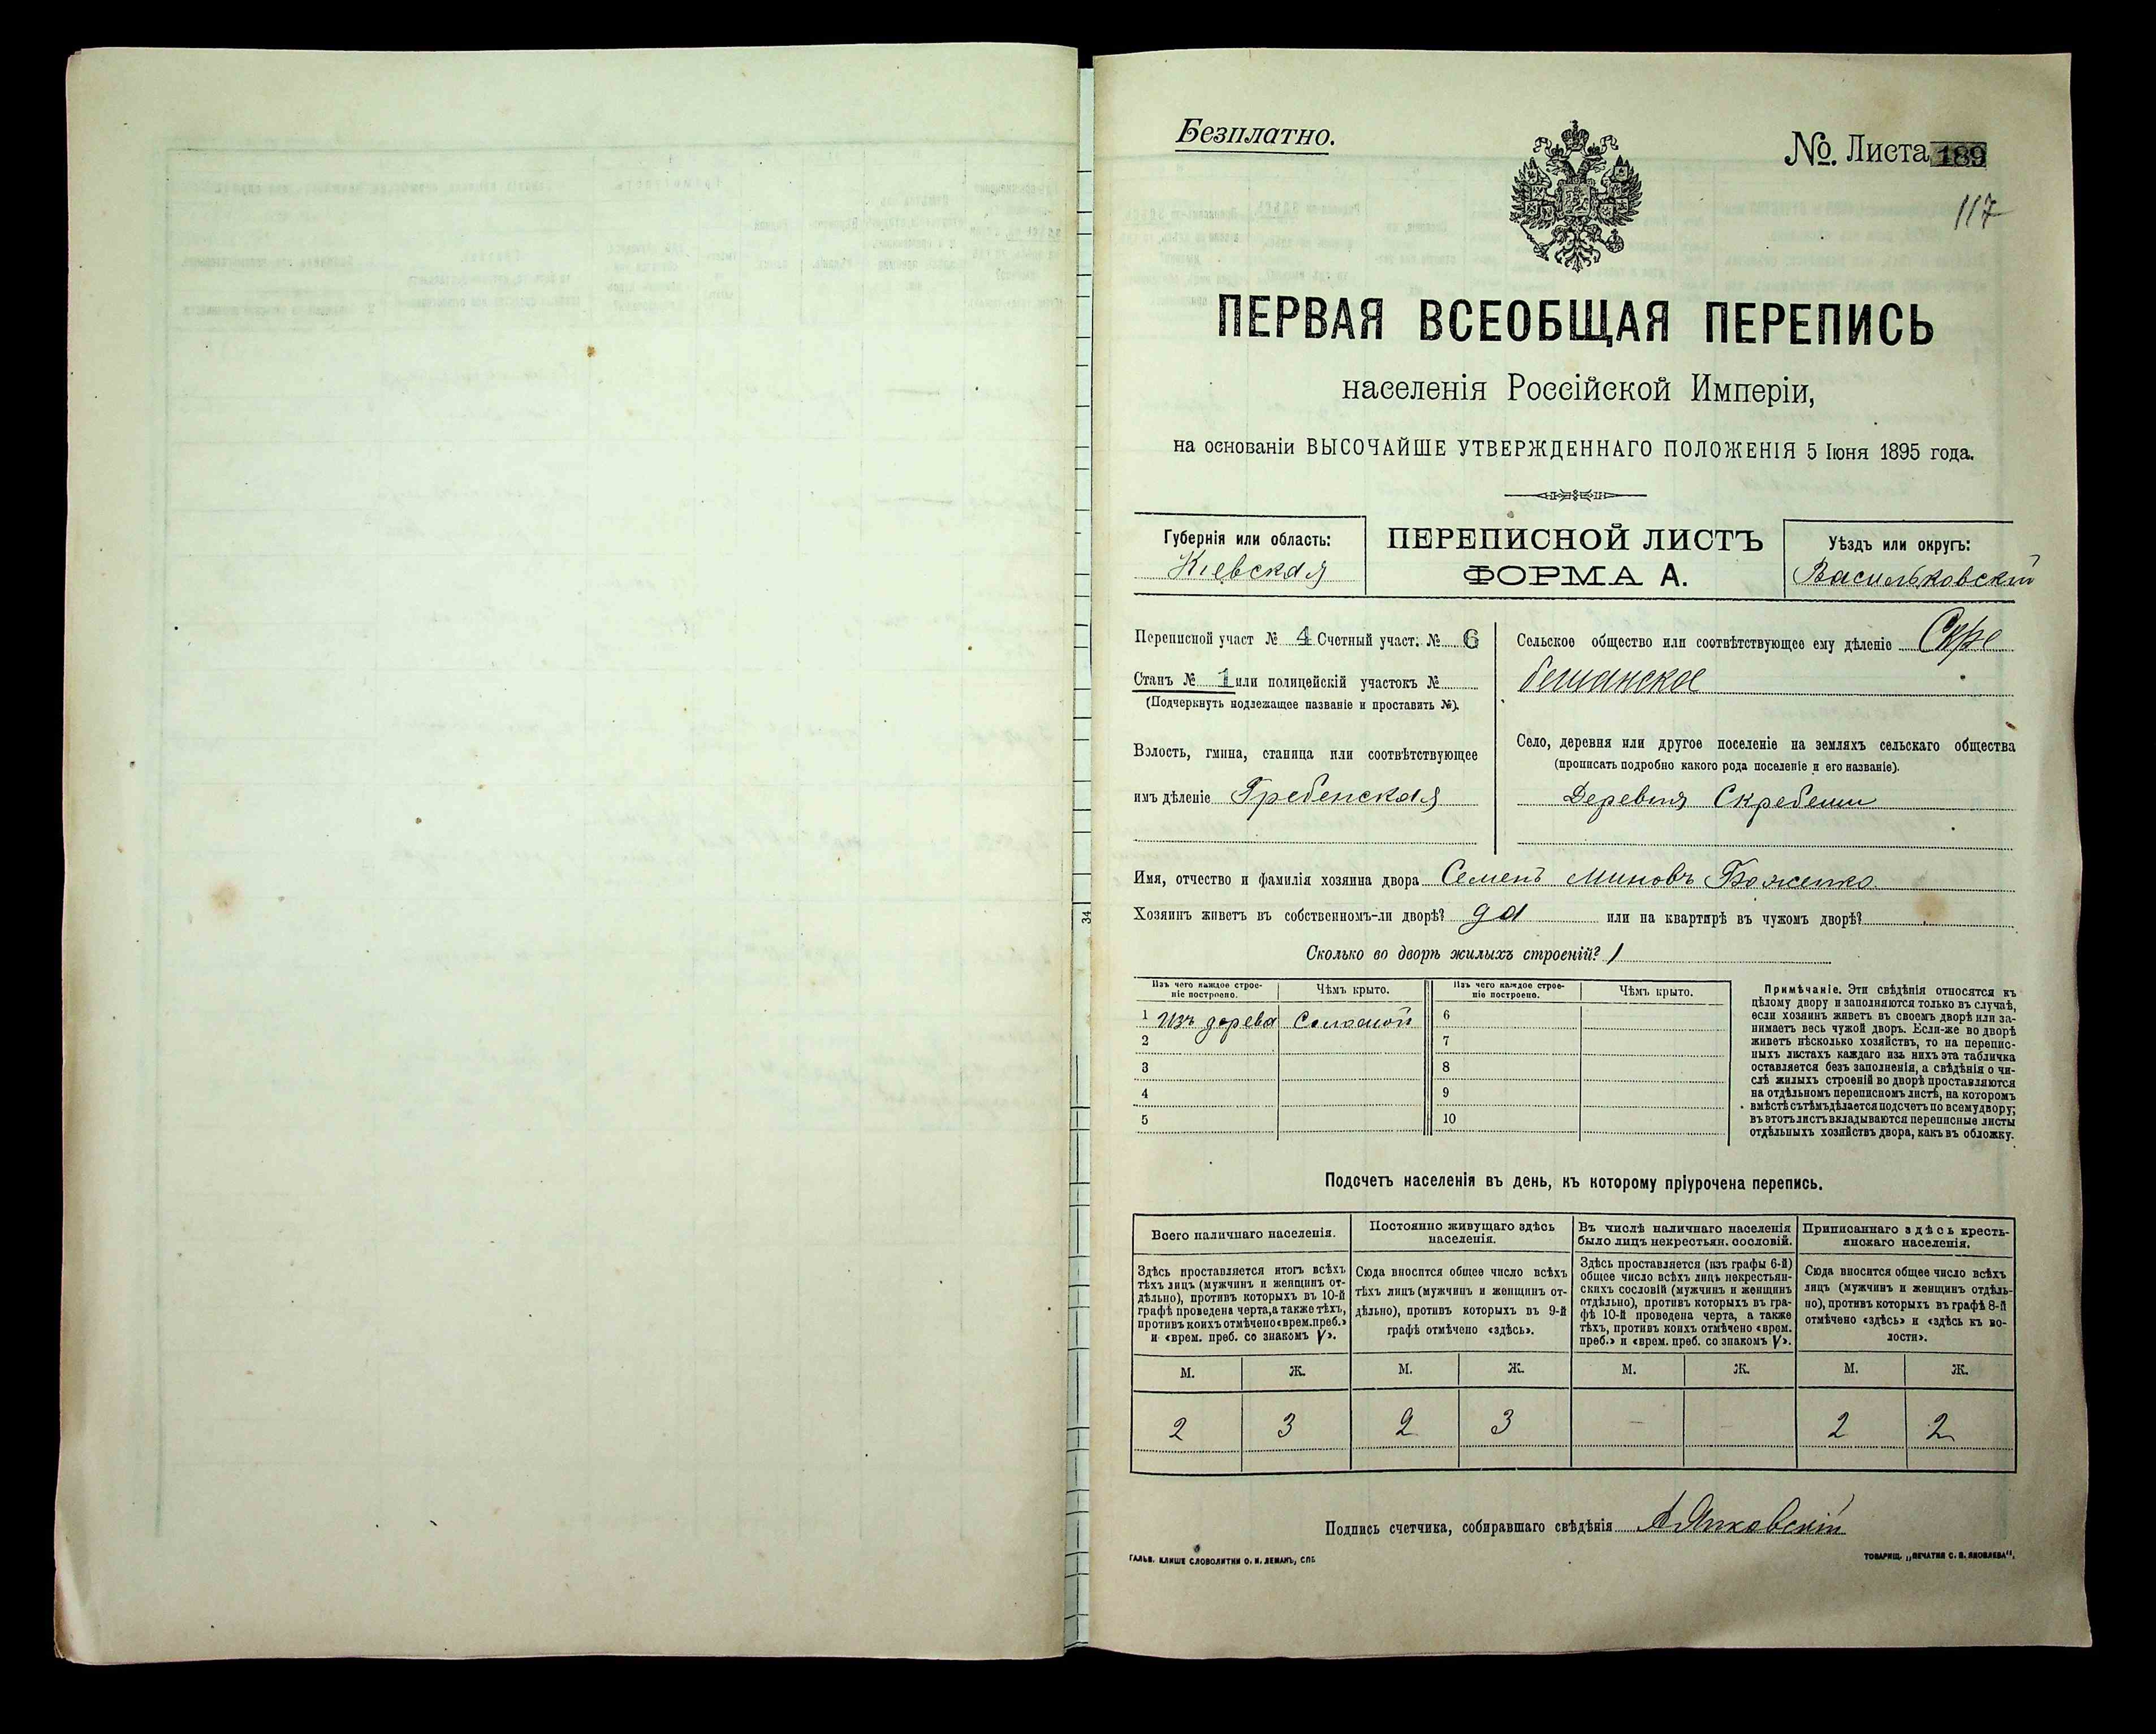 Безплатно.
№. Листа 189
117
ПЕРВАЯ ВСЕОБЩАЯ ПЕРЕПИСЬ
населенія Россійской Имперіи,
на основаніи ВЫСОЧАЙШЕ УТВЕРЖДЕННАГО ПОЛОЖЕНІЯ 5 Іюня 1895 года.
Губернія или область:
Кіевская
ПЕРЕПИСНОЙ ЛИСТЪ
ФОРМА А.
Уѣздъ или округъ:
Васильковскій
Переписной участ № 4 Счетный участ. № 6
Станъ № 1 или полицейскій участокъ №
(Подчеркнуть подлежащее названіе и проставить №).
Волость, гмина, станица или соотвѣтствующее
имъ дѣленіе Гребенская
Сельское общество или соотвѣтствующее ему дѣленіе Скре
бешанское
Село, деревня или другое поселеніе на земляхъ сельскаго общества
(прописать подробно какого рода поселеніе и его названіе).
Деревня Скребеши
Имя, отчество и фамилія хозяина двора Семенъ Миновъ Боженко
Хозяинъ живетъ въ собственномъ-ли дворѣ? да или на квартирѣ въ чужомъ дворѣ?
Сколько во дворѣ жилыхъ строеній? 1
Изъ чего каждое строе-
ніе построено.
Чѣмъ крыто.
Изъ чего каждое строе-
ніе построено.
Чѣмъ крыто.
1 Изъ дерева Соломой 6
2 7
3 8
4 9
5 10
Примѣчаніе. Эти свѣдѣнія относятся къ
цѣлому двору и заполняются только въ случаѣ,
если хозяинъ живетъ въ своемъ дворѣ или за-
нимаетъ весь чужой дворъ. Если-же во дворѣ
живетъ нѣсколько хозяйствъ, то на перепис-
ныхъ листахъ каждаго изъ нихъ эта табличка
оставляется безъ заполненія, а свѣдѣнія о чи-
слѣ жилыхъ строеній во дворѣ проставляются
на отдѣльномъ переписномъ листѣ, на которомъ
вмѣстѣ съ тѣмъ дѣлается подсчетъ по всему двору;
въ этотъ листъ вкладываются переписные листы
отдѣльныхъ хозяйствъ двора, какъ въ обложку.
Подсчетъ населенія въ день, къ которому пріурочена перепись.
Всего наличнаго населенія.
Здѣсь проставляется итогъ всѣхъ
тѣхъ лицъ (мужчинъ и женщинъ от-
дѣльно), противъ которыхъ въ 10-й
графѣ проведена черта, а также тѣхъ,
противъ коихъ отмѣчено «врем. преб.»
и «врем. преб. со знакомъ V».
Постоянно живущаго здѣсь
населенія.
Сюда вносится общее число всѣхъ
тѣхъ лицъ (мужчинъ и женщинъ от-
дѣльно), противъ которыхъ въ 9-й
графѣ отмѣчено «здѣсь».
Въ числѣ наличнаго населенія
было лицъ некрестьян. сословій.
Здѣсь проставляется (изъ графы 6-й)
общее число всѣхъ лицъ некрестьян-
скихъ сословій (мужчинъ и женщинъ
отдѣльно), противъ которыхъ въ гра-
фѣ 10-й проведена черта, а также
тѣхъ, противъ коихъ отмѣчено «врем.
преб.» и «врем. преб. со знакомъ V».
Приписаннаго здѣсь кресть-
янскаго населенія.
Сюда вносится общее число всѣхъ
лицъ (мужчинъ и женщинъ отдѣль-
но), противъ которыхъ въ графѣ 8-й
отмѣчено «здѣсь» и «здѣсь къ во-
лости».
М. Ж. М. Ж. М. Ж. М. Ж.
2 3 2 3 — — 2 2
Подпись счетчика, собиравшаго свѣдѣнія А Янковскій
ГАЛЬВ. КЛИШЕ СЛОВОЛИТНИ О. И. ЛЕМАНЪ, СПБ
ТОВАРИЩ. „ПЕЧАТНЯ С. П. ЯКОВЛЕВА“.
34